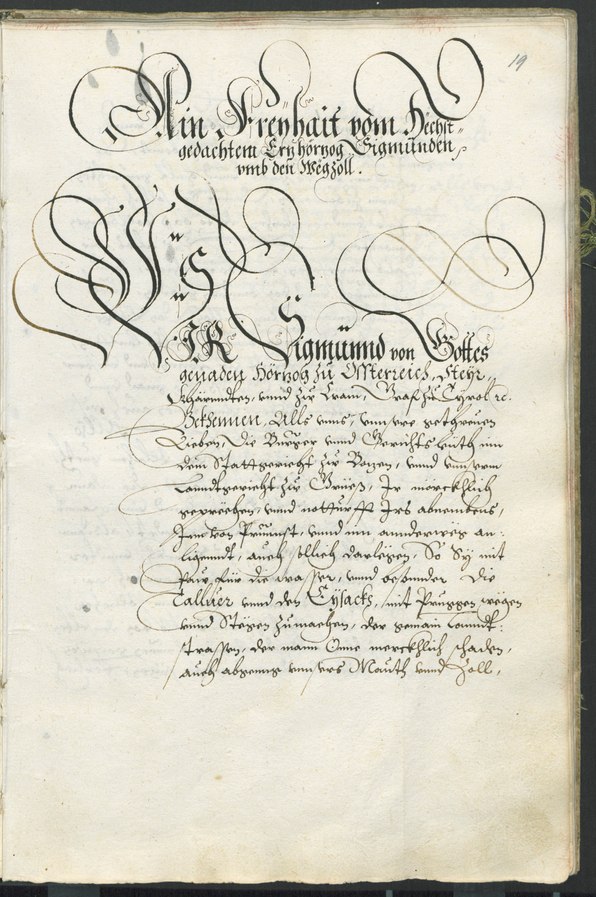 19
Ain Freyhait vom Hechst-
gedachtem Ertzhörtzog Sigmunden,
vmb den Wegzoll.
WIR Sigmunnd von Gottes
genaden Hörtzog zu Össterreich, Steyr,
Khärnndten, vnnd zu Crain, Graf zu Tyrol etc.
Bekhennen, Alls vnns, vnnsere gethreuen
Lieben, Die Burger vnnd Gerichtsleüth inn
dem Stattgericht zu Bozen, vnnd vnnserm
Lanndtgericht zu Griieß, Ir mörckhlich
geprechen, vnnd notturfft Irs abnembens,
Inen von Prunnst, vnnd inn annderweg an-
ligenndt, auch sollich darlegen, So Sy mit
für die wasser, vnnd besonnder Die
Tallfer vnnd den Eysackh, mit Pruggen wegen
vnnd Stegen zumachen, der gemain Lanndt-
strassen, der mann One merckhlich schaden,
auch abgenng vnnsers Mauth vnnd Zoll,